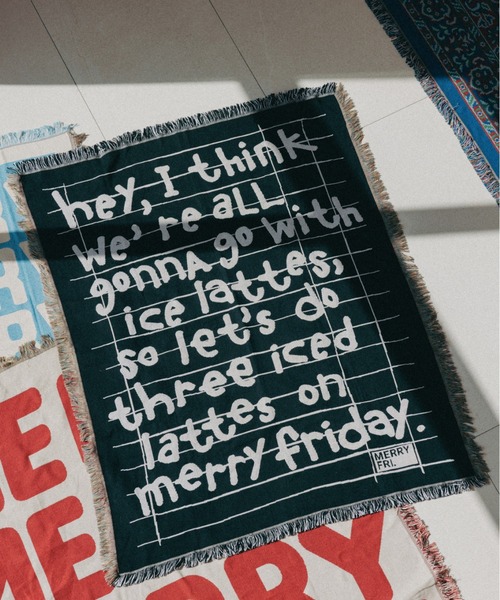 hey, I think
we're all
gonnA go with
ice lattes,
so let's do
three iced
lattes on
merry friday.
MERRY
FRI.